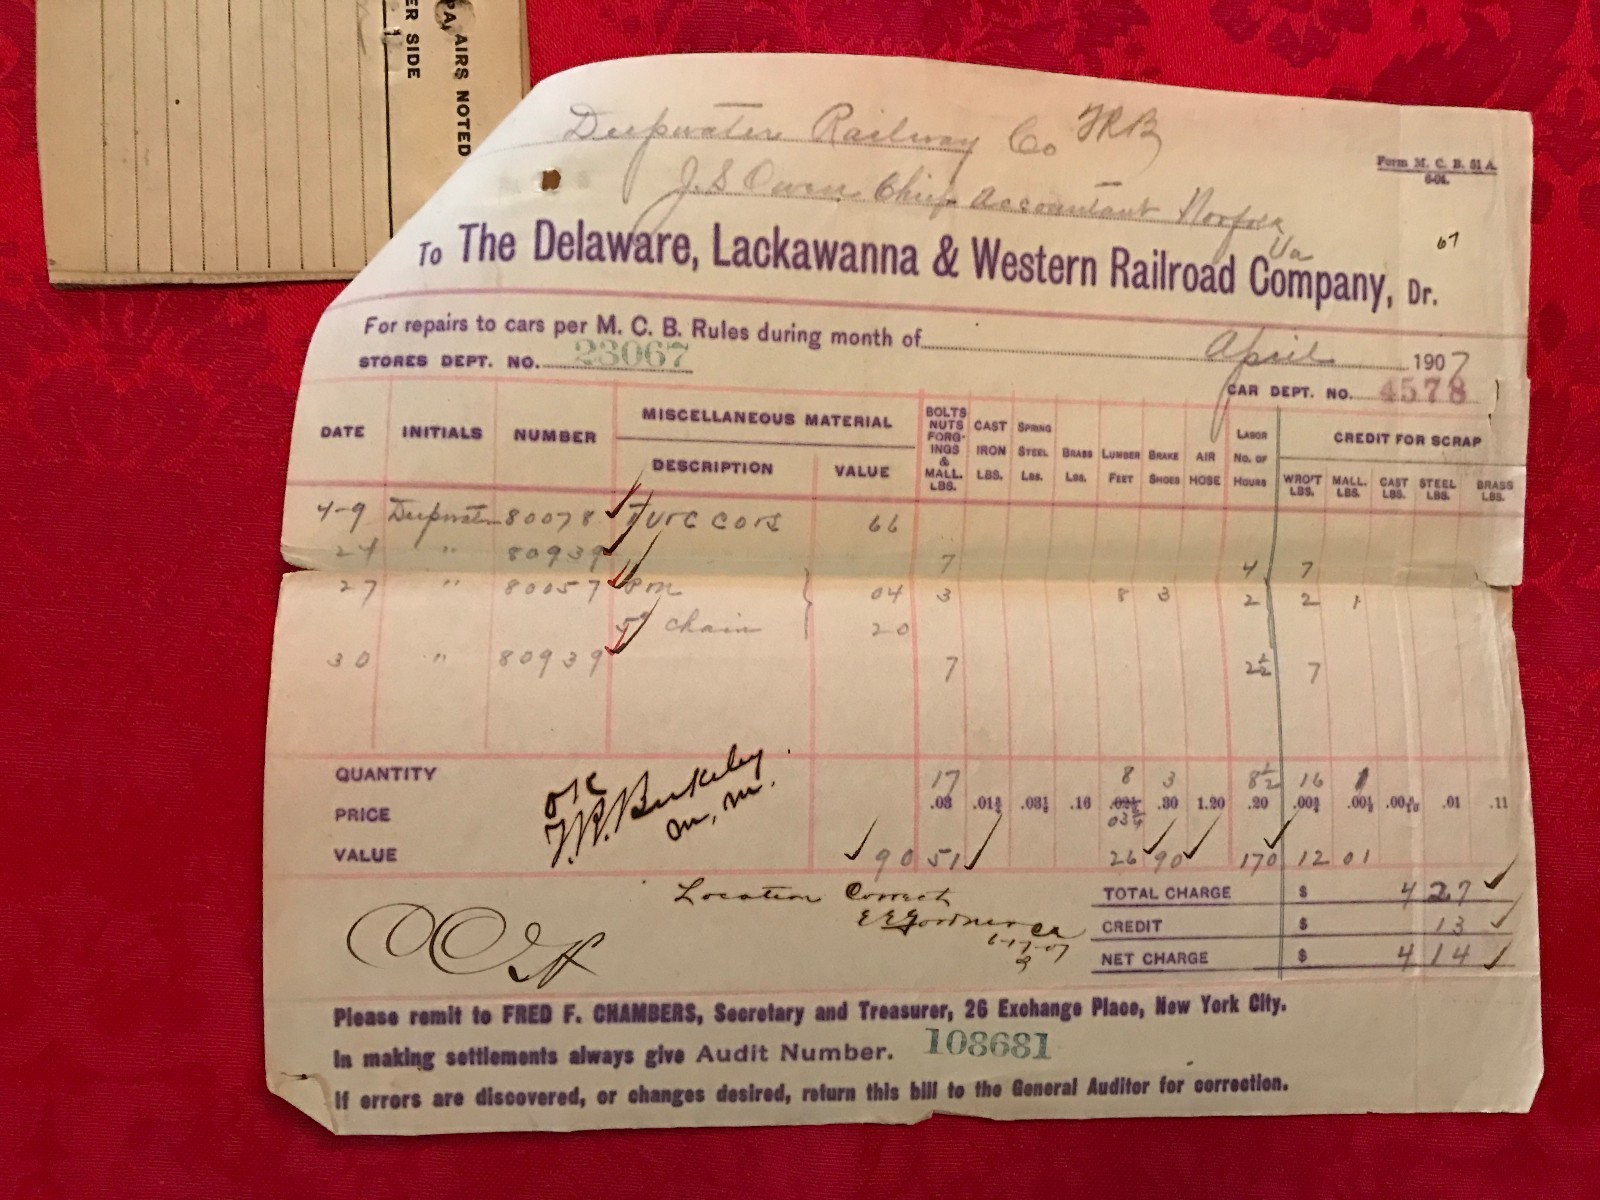 AIRS NOTED
ER SIDE
Deepwater Railway Co
J. S Owen Chief Accountant Norfolk
Va
Form M. C. B. 51 A.
6-04.
67
To The Delaware, Lackawanna & Western Railroad Company, Dr.
For repairs to cars per M. C. B. Rules during month of April 1907
STORES DEPT. NO. 23067
CAR DEPT. NO. 4578
DATE INITIALS NUMBER MISCELLANEOUS MATERIAL DESCRIPTION VALUE BOLTS NUTS FORGINGS & MALL. LBS. CAST IRON LBS. SPRING STEEL LBS. BRASS LBS. LUMBER FEET BRAKE SHOES AIR HOSE LABOR NO. OF HOURS CREDIT FOR SCRAP WRO'T LBS. MALL. LBS. CAST LBS. STEEL LBS. BRASS LBS.
4-9 Deepwater 80078 66
24 " 80939 7 4 7
27 " 80057 04 3 8 3 2 2 1
chain 20
30 " 80939 7 2½ 7
QUANTITY 17 8 3 8½ 16 1
PRICE .03 .16 .30 1.20 .20 .01 .11
VALUE 90 51 26 90 170 12 01
OK
Berkeley
M. M.
Location Correct
6-17-07
TOTAL CHARGE $ 4 27
CREDIT $ 13
NET CHARGE $ 4 14
Please remit to FRED F. CHAMBERS, Secretary and Treasurer, 26 Exchange Place, New York City.
In making settlements always give Audit Number. 108681
If errors are discovered, or changes desired, return this bill to the General Auditor for correction.